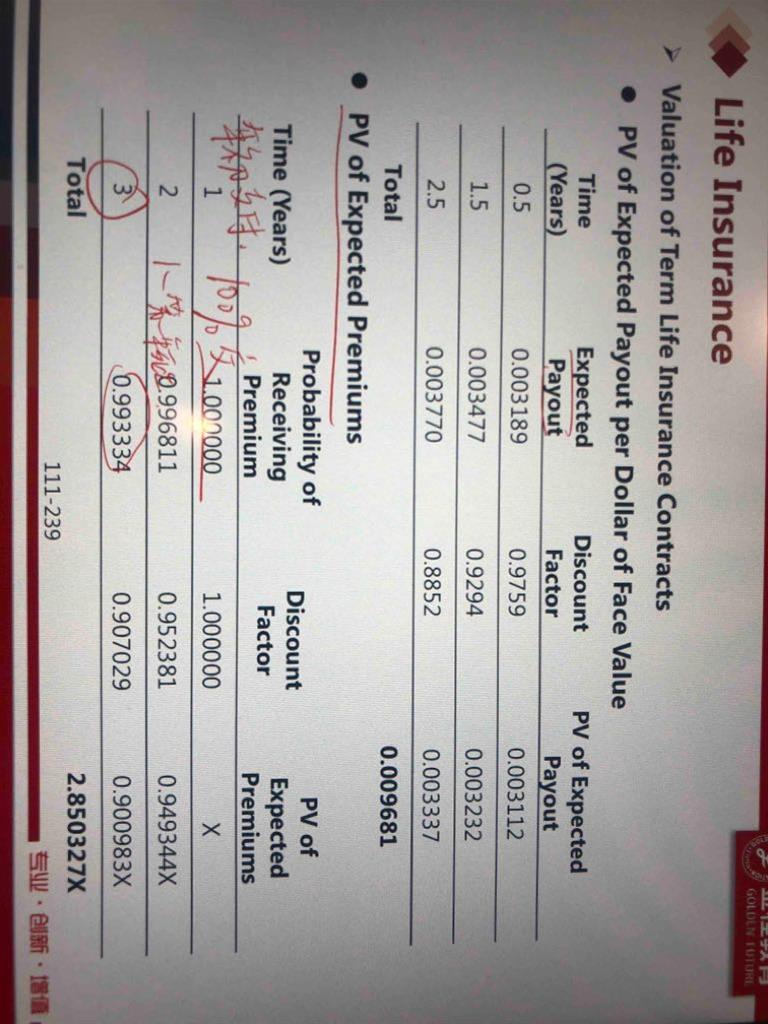 Life Insurance
➢ Valuation of Term Life Insurance Contracts
● PV of Expected Payout per Dollar of Face Value
Time (Years) Expected Payout Discount Factor PV of Expected Payout
0.5 0.003189 0.9759 0.003112
1.5 0.003477 0.9294 0.003232
2.5 0.003770 0.8852 0.003337
Total 0.009681
● PV of Expected Premiums
Time (Years) Probability of Receiving Premium Discount Factor PV of Expected Premiums
1 1.000000 1.000000 X
2 0.996811 0.952381 0.949344X
3 0.993334 0.907029 0.900983X
Total 2.850327X
100%
111-239
专业·创新·增值
GOLDEN FUTURE